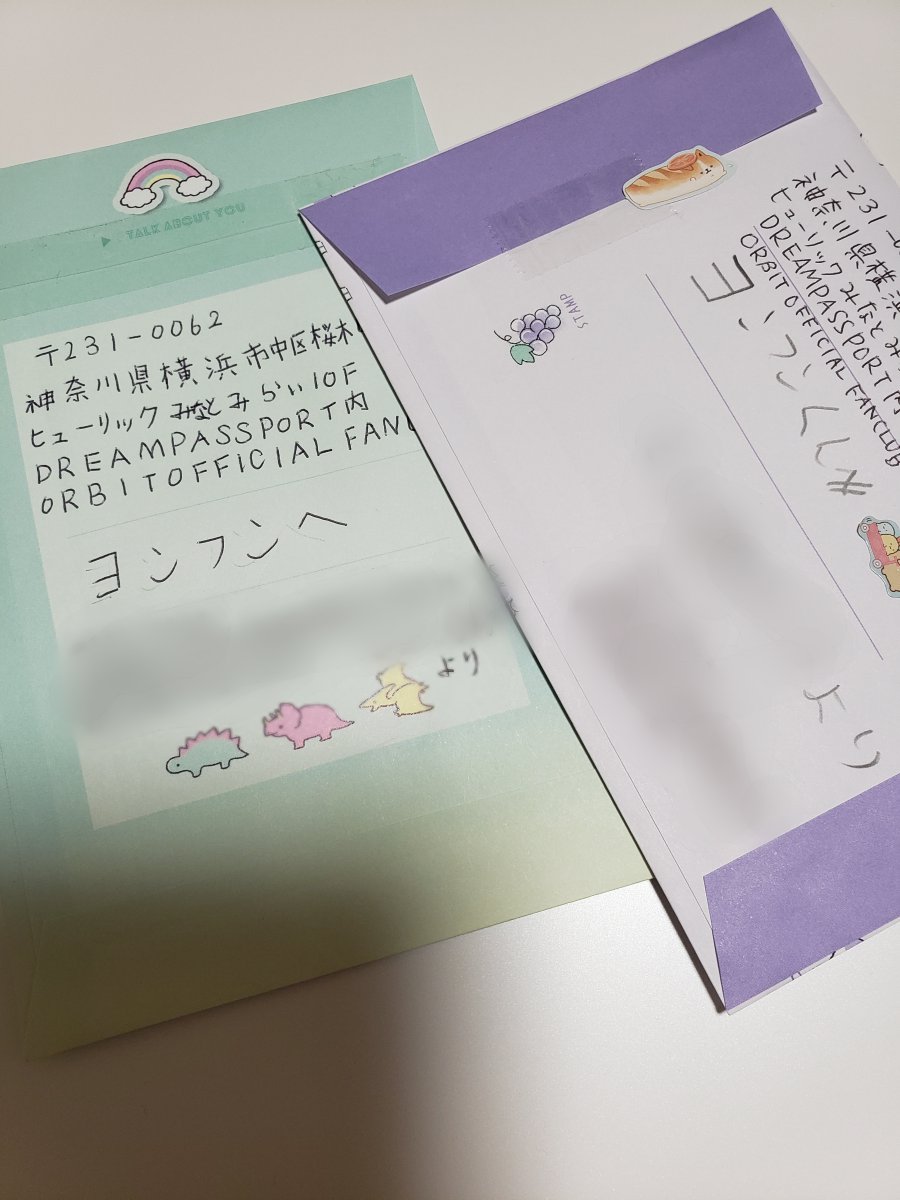 ▶ TALK ABOUT YOU
〒231-0062
神奈川県横浜市中区桜木
ヒューリックみなとみらい10F
DREAMPASSPORT内
ORBITOFFICIAL FANC
ヨンフンへ
より
〒231-
神奈川県横浜
ヒューリックみなとみ
DREAMPASSPORT内
ORBIT OFFICIAL FANCLUB
ヨンフンくんへ
STAMP
より